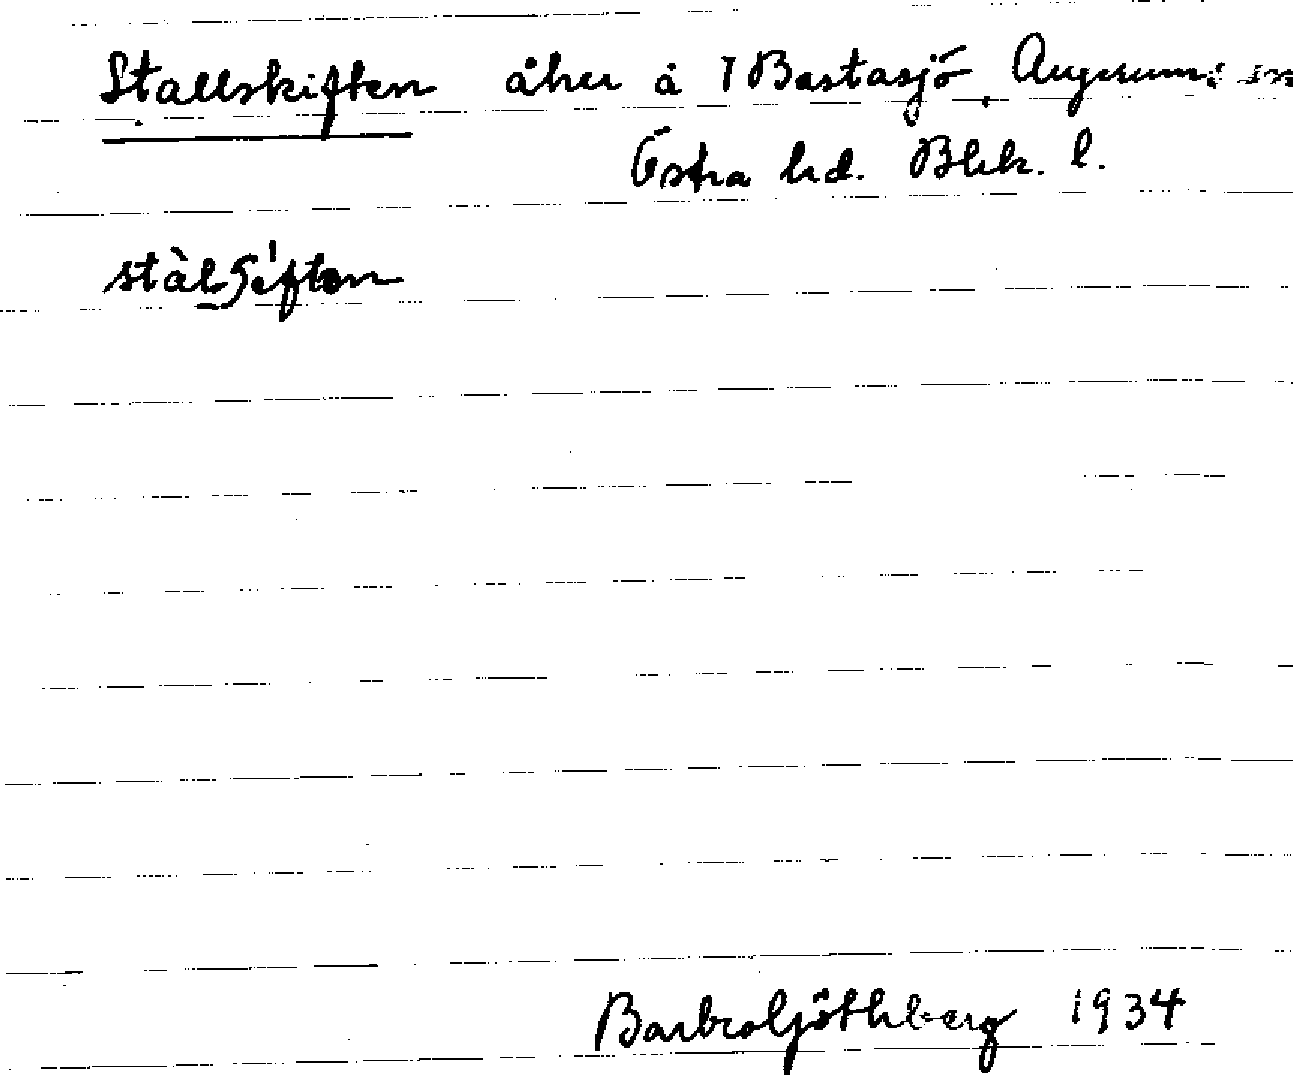 Stallskiften åker å 1 Bastasjö, Augerums sn
Östra hd. Blek. l.
Barbro Ljöthberg 1934